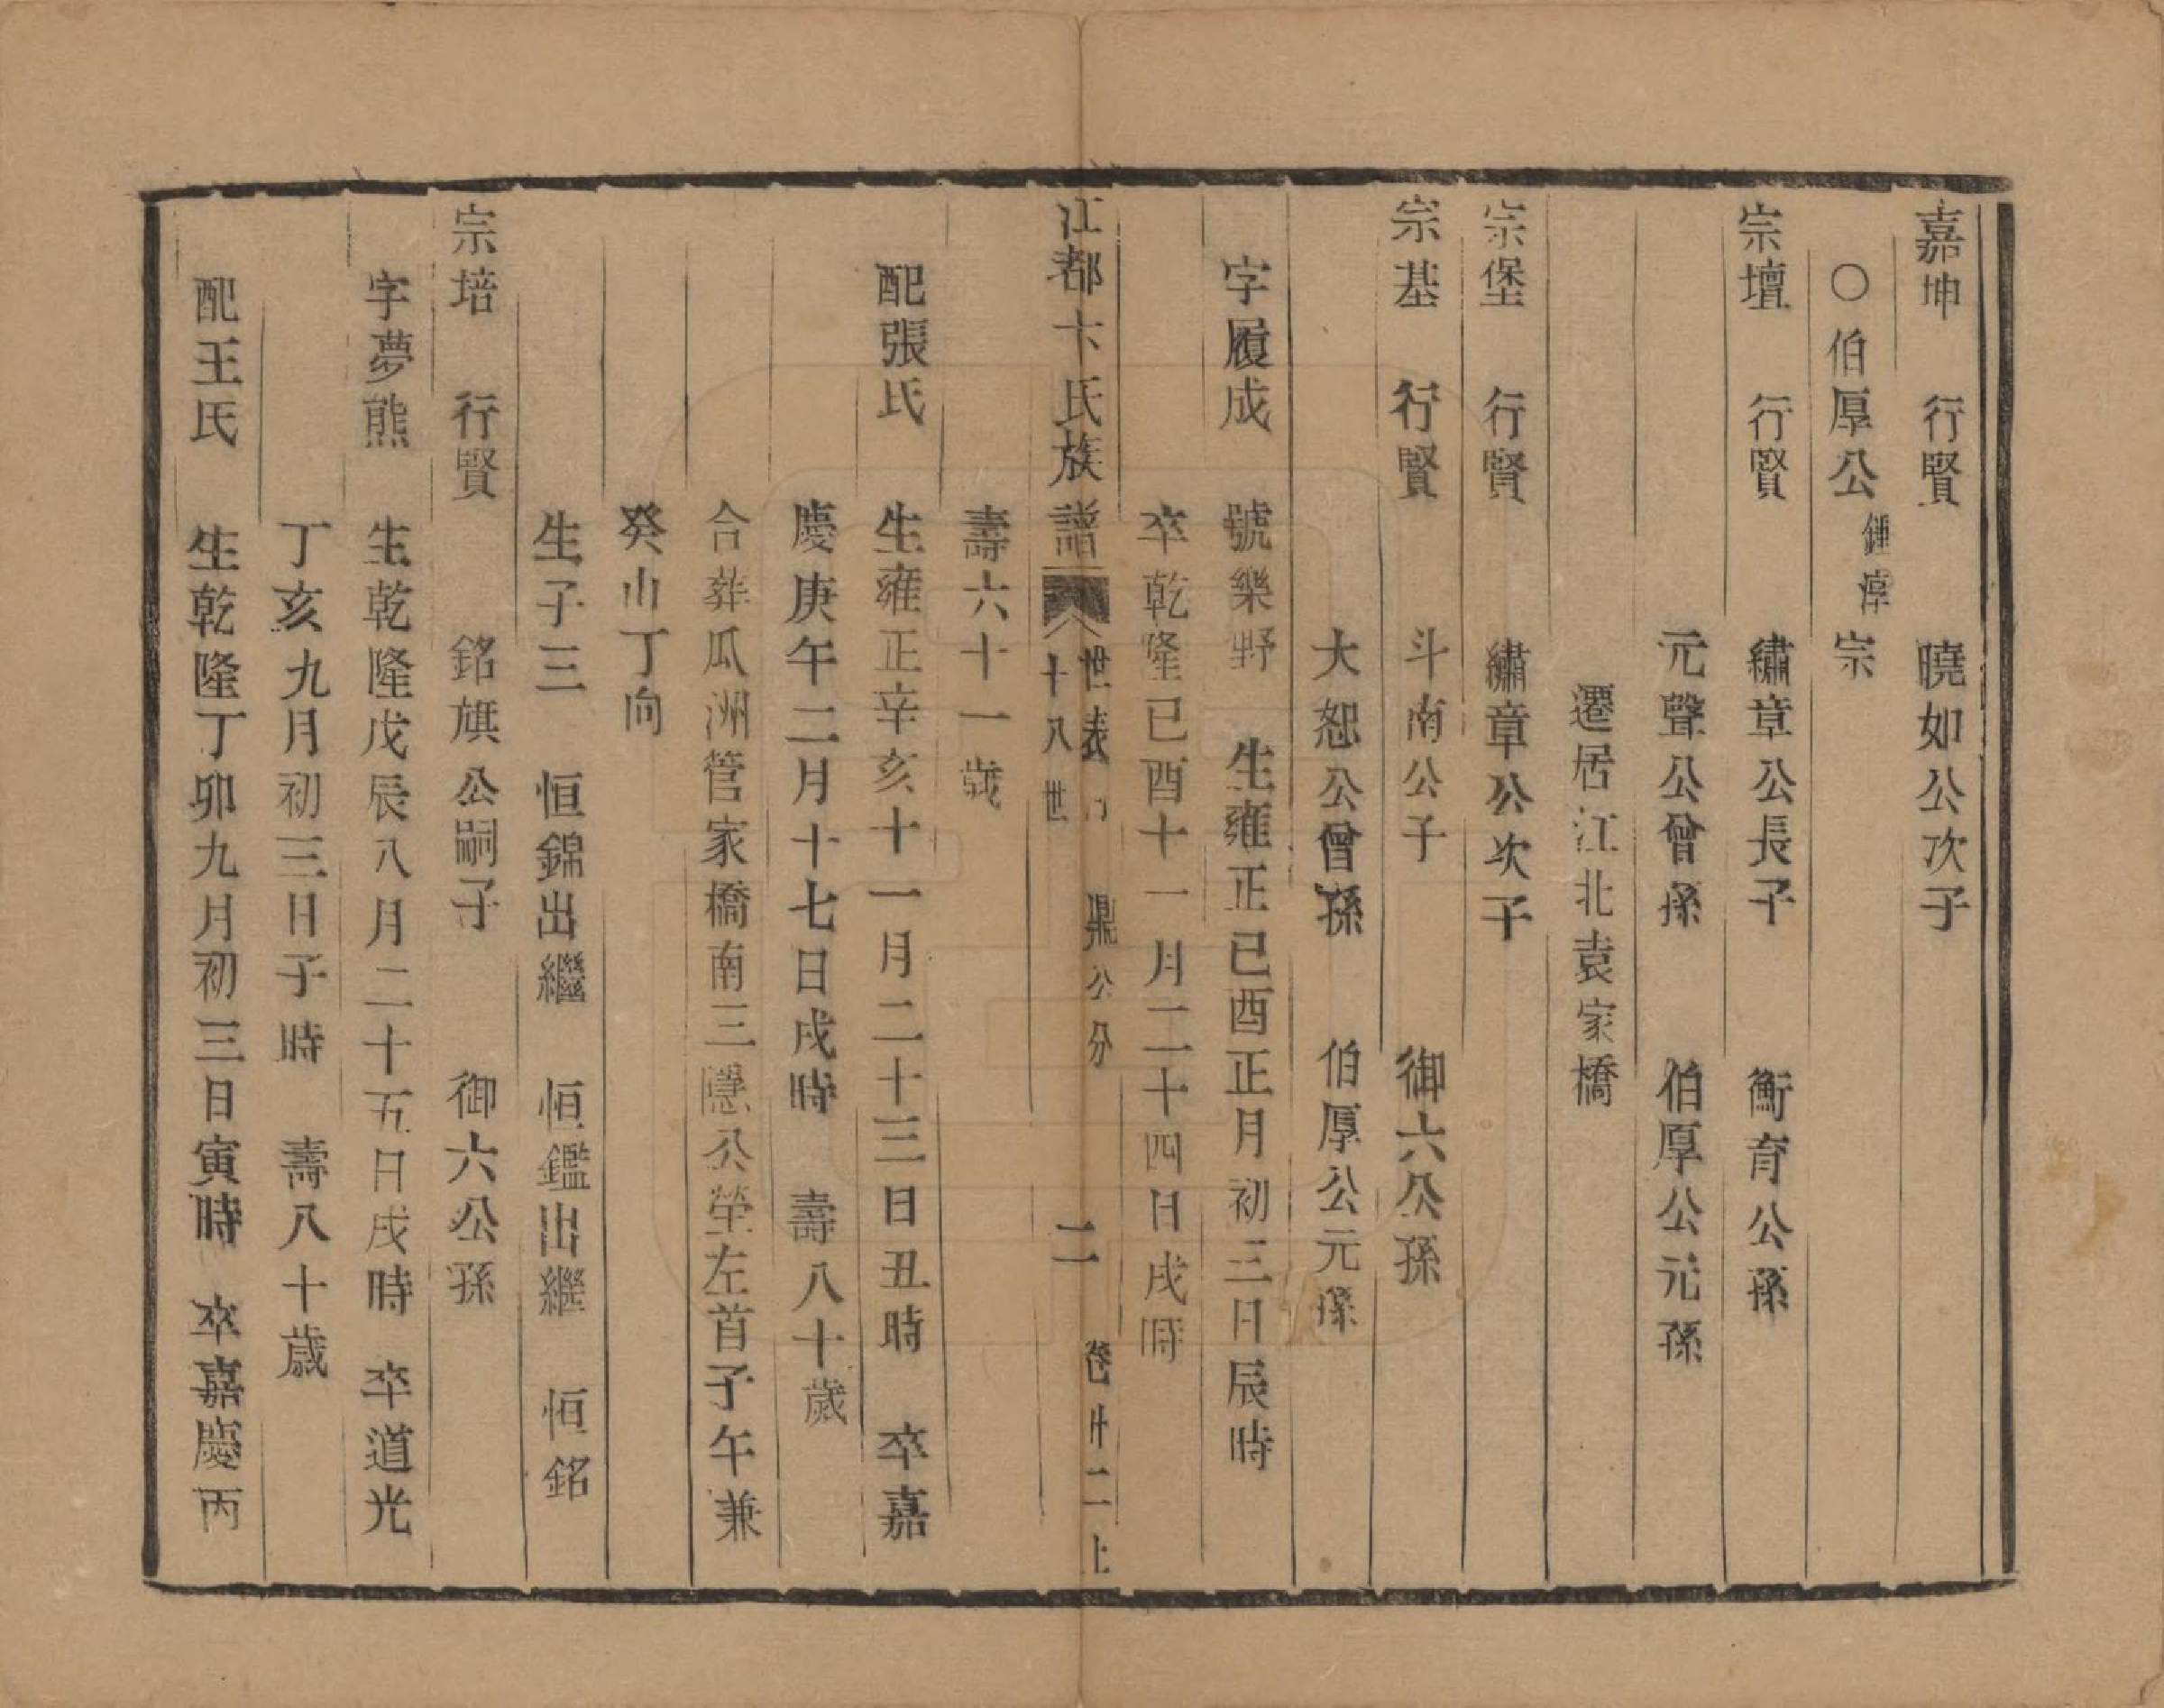 嘉坤 行賢 曉如公次子
〇伯厚公 鍾淳 宗
宗壇 行賢 繡章公長子 衡育公孫
元聲公曾孫 伯厚公元孫
遷居江北袁家橋
宗堡 行賢 繡章公次子
宗基 行賢 斗南公子 御六公孫
大恕公曾孫 伯厚公元孫
字履成 號樂野 生雍正己酉正月初三日辰時
卒乾隆己酉十一月二十四日戌時
江都卞氏族譜 世表 十八世 鼎公分 二 卷廾二上
壽六十一歲
配張氏 生雍正辛亥十一月二十三日丑時 卒嘉
慶庚午二月十七日戌時 壽八十歲
合葬瓜洲管家橋南三隱公塋左首子午兼
癸山丁向
生子三 恒錦出繼 恒鑑出繼 恒銘
宗培 行賢 銘旗公嗣子 御六公孫
字夢熊 生乾隆戊辰八月二十五日戌時 卒道光
丁亥九月初三日子時 壽八十歲
配王氏 生乾隆丁卯九月初三日寅時 卒嘉慶丙